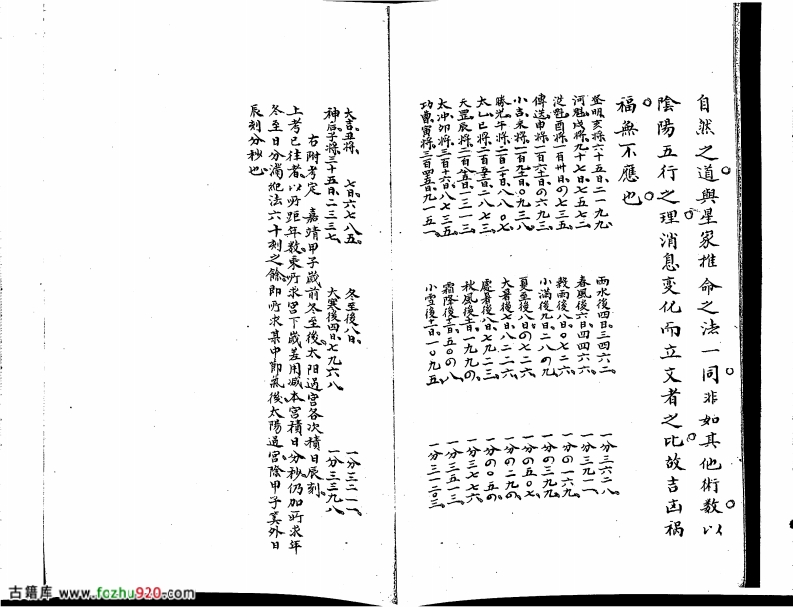 自然之道與星家推命之法一同非如其他術數以
陰陽五行之理消息變化而立文者之比故吉凶禍
福無不應也
登明亥將六十五日二一九九 雨水後四日三四六二 一分三六二八
河魁戌將九十七日七五七二 春風後六日四四六六 一分三九一一
從魁酉將一百卅日〇七三五 穀雨後八日〇七二六 一分〇一六九
傳送申將一百六十日〇六九三 小滿後九日二八〇九 一分〇三七九
小吉未將 夏至後八日〇七二六 一分〇五〇七
勝光午將 大暑後七日八二二六 一分〇二九〇
太乙巳將 處暑後八日七九二三 一分〇〇五〇
天罡辰將 秋風後 一分三七七六
太冲卯將三百十六日八七三五 霜降後 一分三五一三
功曹寅將三百四五日九一五一 小雪後 一分三一二〇三
大吉丑將 七日六七八五 冬至後八日 一分三二一一
神后子將三十五日二三三七 大寒後四日七九六八 一分三三九八
右附考定 嘉靖甲子歲前冬至後太阳過宮各次積日辰刻
上考已往者以所距年数乘所求宮下歲差用减本宮積日分秒仍加所求年
冬至日分滿紀法六十刻之餘即所求某中節氣後太陽過宮除甲子筭外日
辰刻分秒也
古籍库 www.fozhu920.com